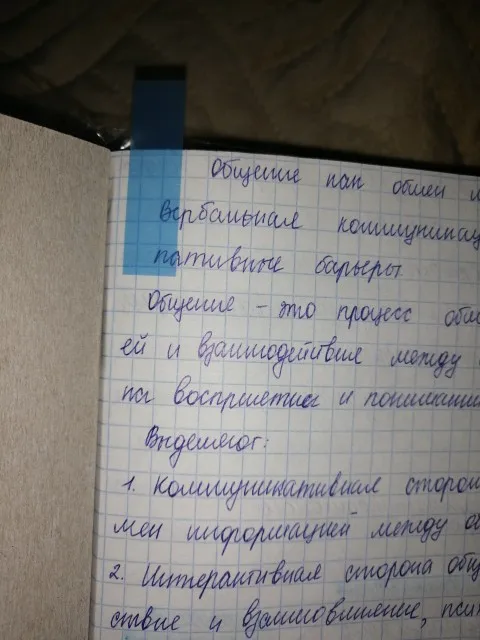 Общение как обмен
Вербальная коммуникац
кативные барьеры
Общение – это процесс обм
ей и взаимодействие между
ка восприятия и понимани
Выделяют:
1. Коммуникативная сторон
мен информацией между об
2. Интерактивная сторона общ
ствие и взаимовлияние, пси